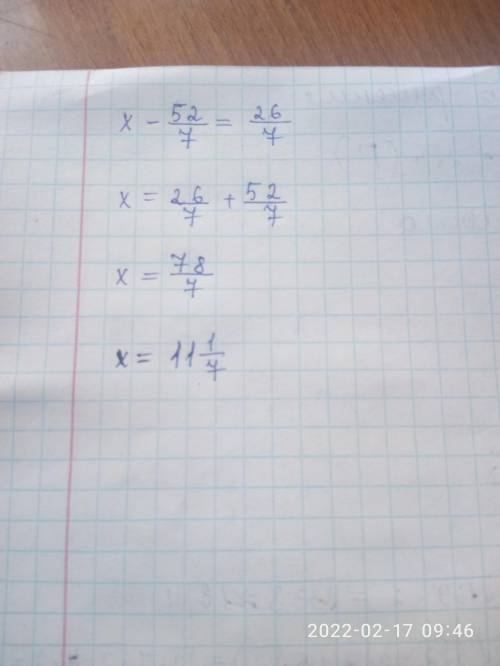 x - 52/7 = 26/7
x = 26/7 + 52/7
x = 78/7
x = 11 1/7
2022-02-17 09:46